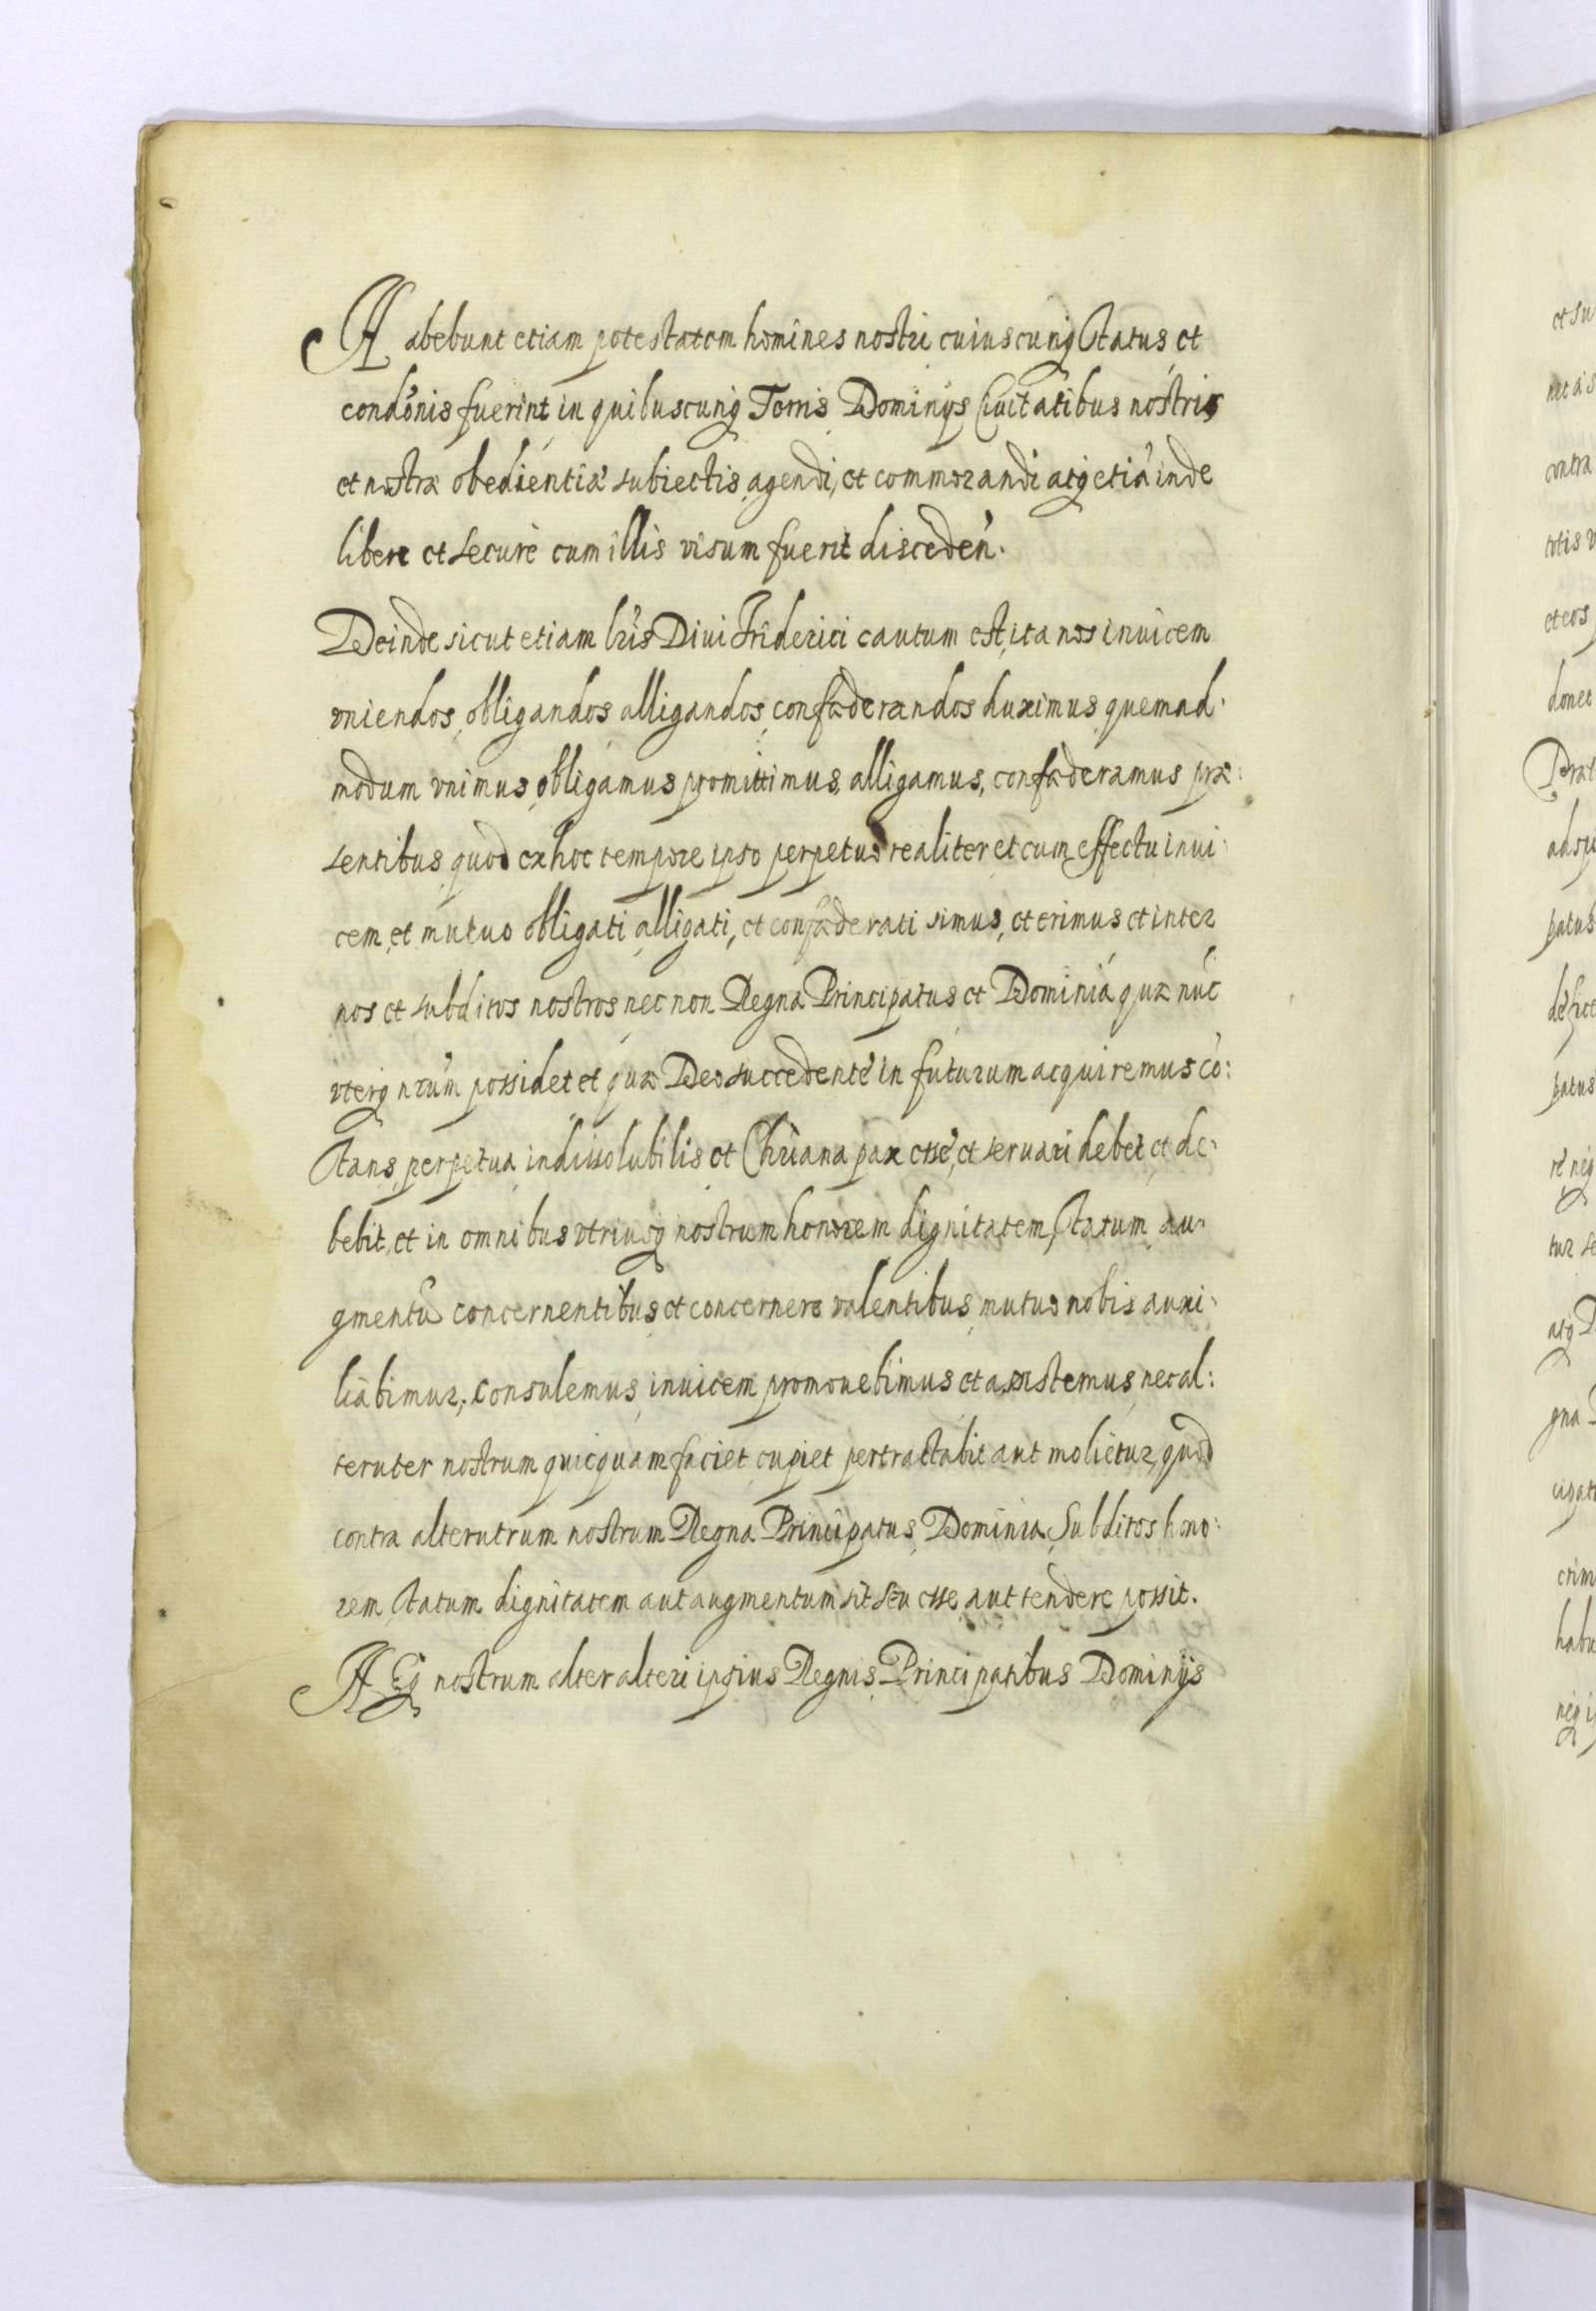 Habebunt etiam potestatem homines nostri cuiuscunq Status et
condōnis fuerint in quibuscunq Terris Dominijs Ciuitatibus nostris
et nostræ obedientiæ subiectis, agendi, et commorandi atq etiā inde
libere et secure cum illis visum fuerit disceden̄.
Deinde sicut etiam lr̄is Diui Friderici cautum est, ita nos inuicem
vniendos, obligandos alligandos, confæderandos duximus, quemad:
modum vnimus obligamus promittimus, alligamus, confæderamus præ:
sentibus, quod ex hoc tempore ipso perpetuo realiter et cum effectu inui:
cem, et mutuo obligati alligati, et confæderati simus, et erimus et inter
nos et subditos nostros nec non Regna Principatus et Dominia quæ nūc
vterq nr̄um possidet et quæ Deo succedente in futurum acquiremus cō:
stans, perpetua, indissolubilis et Chr̄iana pax esse, et seruari debet et de:
bebit, et in omnibus vtriusq nostrum honorem dignitatem, Statum au:
gmentū concernentibus et concernere valentibus mutuo nobis auxi:
liabimur, consulemus, inuicem promouebimus et assistemus, nec al:
teruter nostrum quicquam faciet, cupiet pertractabit aut molietur, quod
contra alterutrum nostrum Regna Principatus, Dominia, Subditos hono:
rem Statum dignitatem aut augmentum sit seu esse aut tendere possit.
AEq nostrum alter alteri ipsius Regnis, Principatibus Dominijs
et su
contra
totis v
et eos
donec
Præt
ad su
patus
patus
re neq
tur se
atq D
gna
cipat
crim
habu
neq i